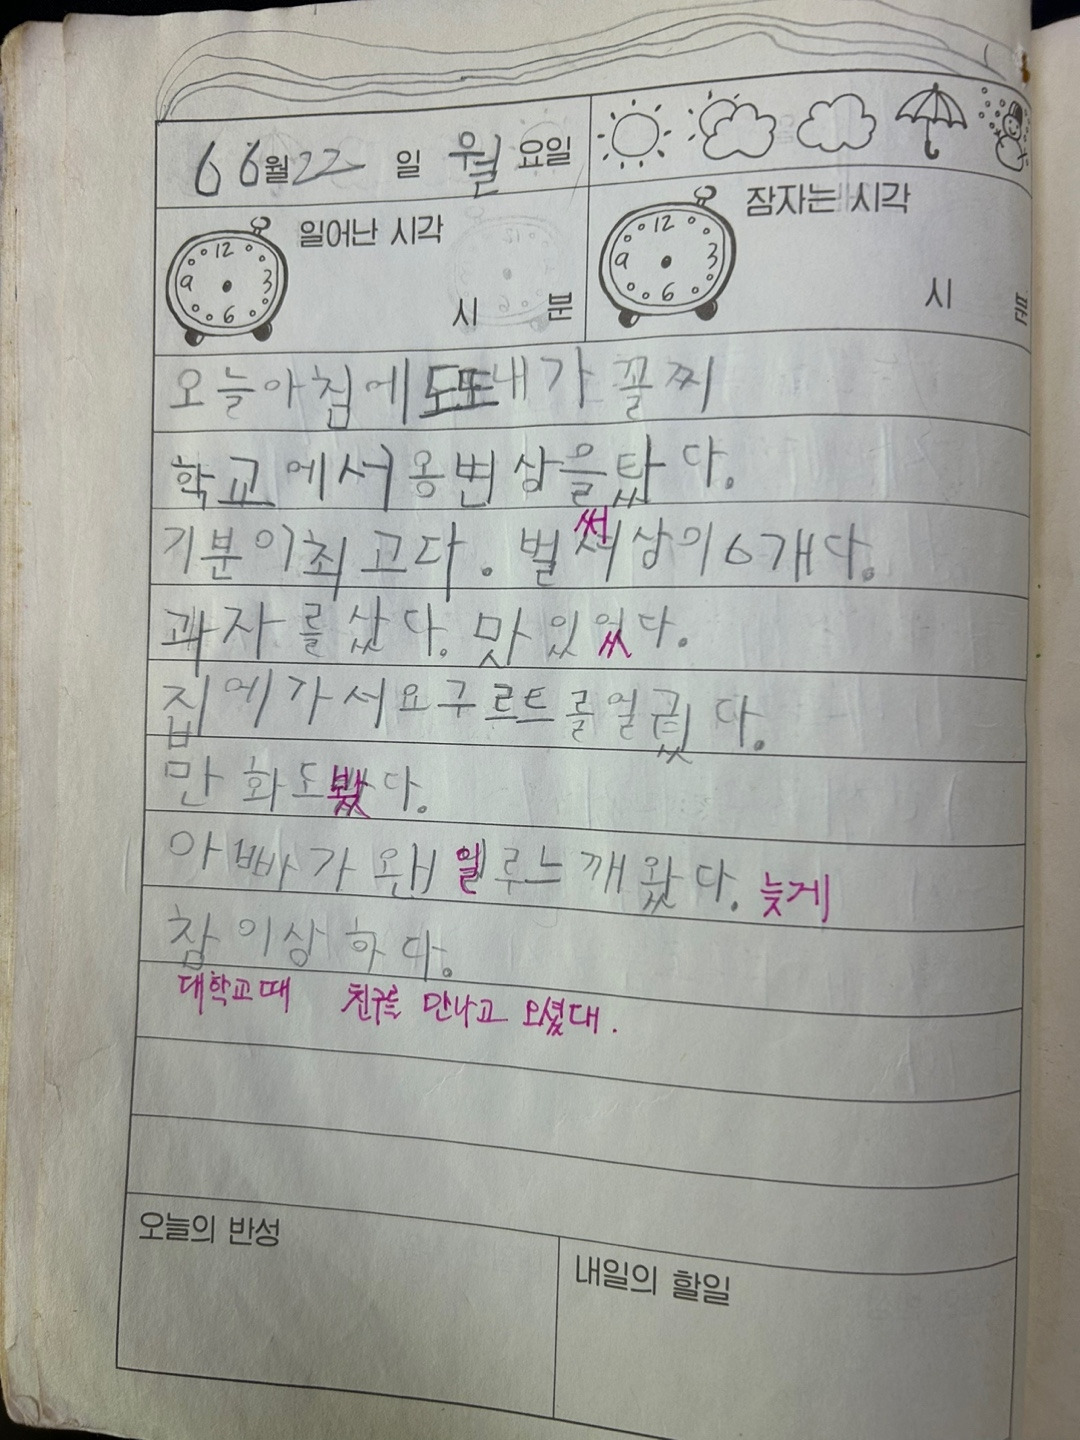 6 6월 22 일 월 요일
일어난 시각
시 분
잠자는 시각
시 분
오늘아침에 또 내가 꼴찌
학교에서 웅변상을탔다.
기분이최고다. 벌써상이6개다.
과자를샀다. 맛있었다.
집에가서요구르트를얼궜다.
만화도봤다.
아빠가왠일루느깨왔다. 늦게
참이상하다.
대학교때 친구를 만나고 오셨대.
오늘의 반성
내일의 할일